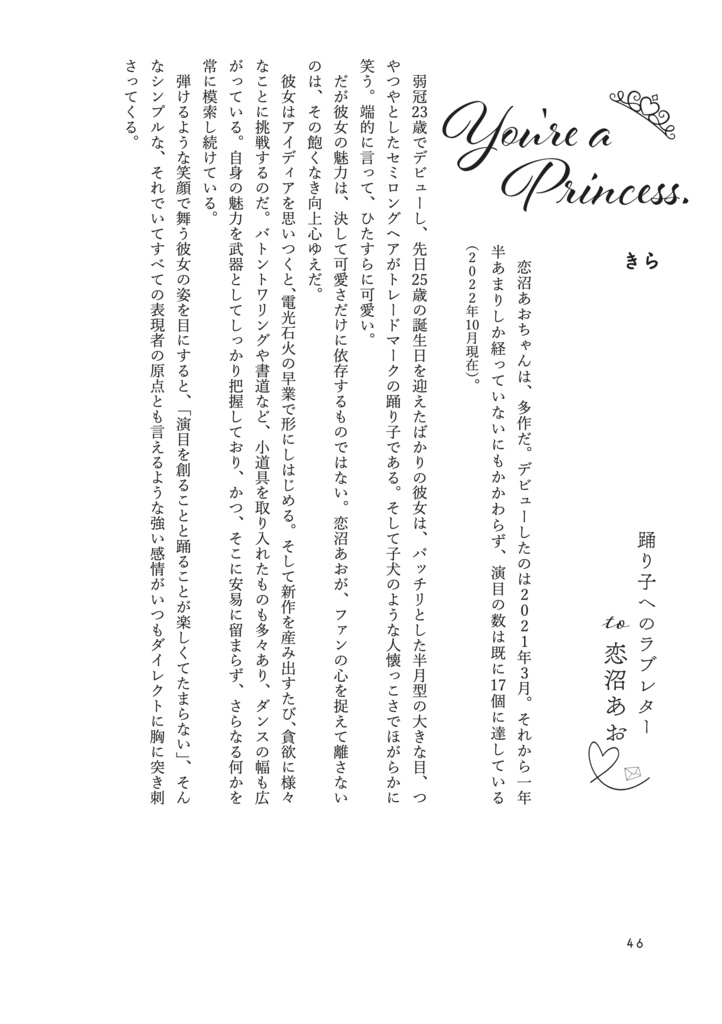 踊り子へのラブレター
to 恋沼あお
You're a
Princess.
きら
　恋沼あおちゃんは、多作だ。デビューしたのは2021年3月。それから一年
半あまりしか経っていないにもかかわらず、演目の数は既に17個に達している
（2022年10月現在）。
　弱冠23歳でデビューし、先日25歳の誕生日を迎えたばかりの彼女は、パッチリとした半月型の大きな目、つ
やつやとしたセミロングヘアがトレードマークの踊り子である。そして子犬のような人懐っこさでほがらかに
笑う。端的に言って、ひたすらに可愛い。
　だが彼女の魅力は、決して可愛さだけに依存するものではない。恋沼あおが、ファンの心を捉えて離さない
のは、その飽くなき向上心ゆえだ。
　彼女はアイディアを思いつくと、電光石火の早業で形にしはじめる。そして新作を産み出すたび、貪欲に様々
なことに挑戦するのだ。バトントワリングや書道など、小道具を取り入れたものも多々あり、ダンスの幅も広
がっている。自身の魅力を武器としてしっかり把握しており、かつ、そこに安易に留まらず、さらなる何かを
常に模索し続けている。
　弾けるような笑顔で舞う彼女の姿を目にすると、「演目を創ることと踊ることが楽しくてたまらない」、そん
なシンプルな、それでいてすべての表現者の原点とも言えるような強い感情がいつもダイレクトに胸に突き刺
さってくる。
46